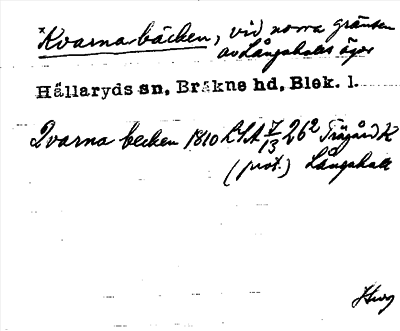 *Kvarnabäcken, vid norra gränsen
av Långahalls ägor
Hällaryds sn, Bräkne hd, Blek. l.
Qvarna becken 1810 LSA 7/13 26² Trägård K
(prot.) Långahall